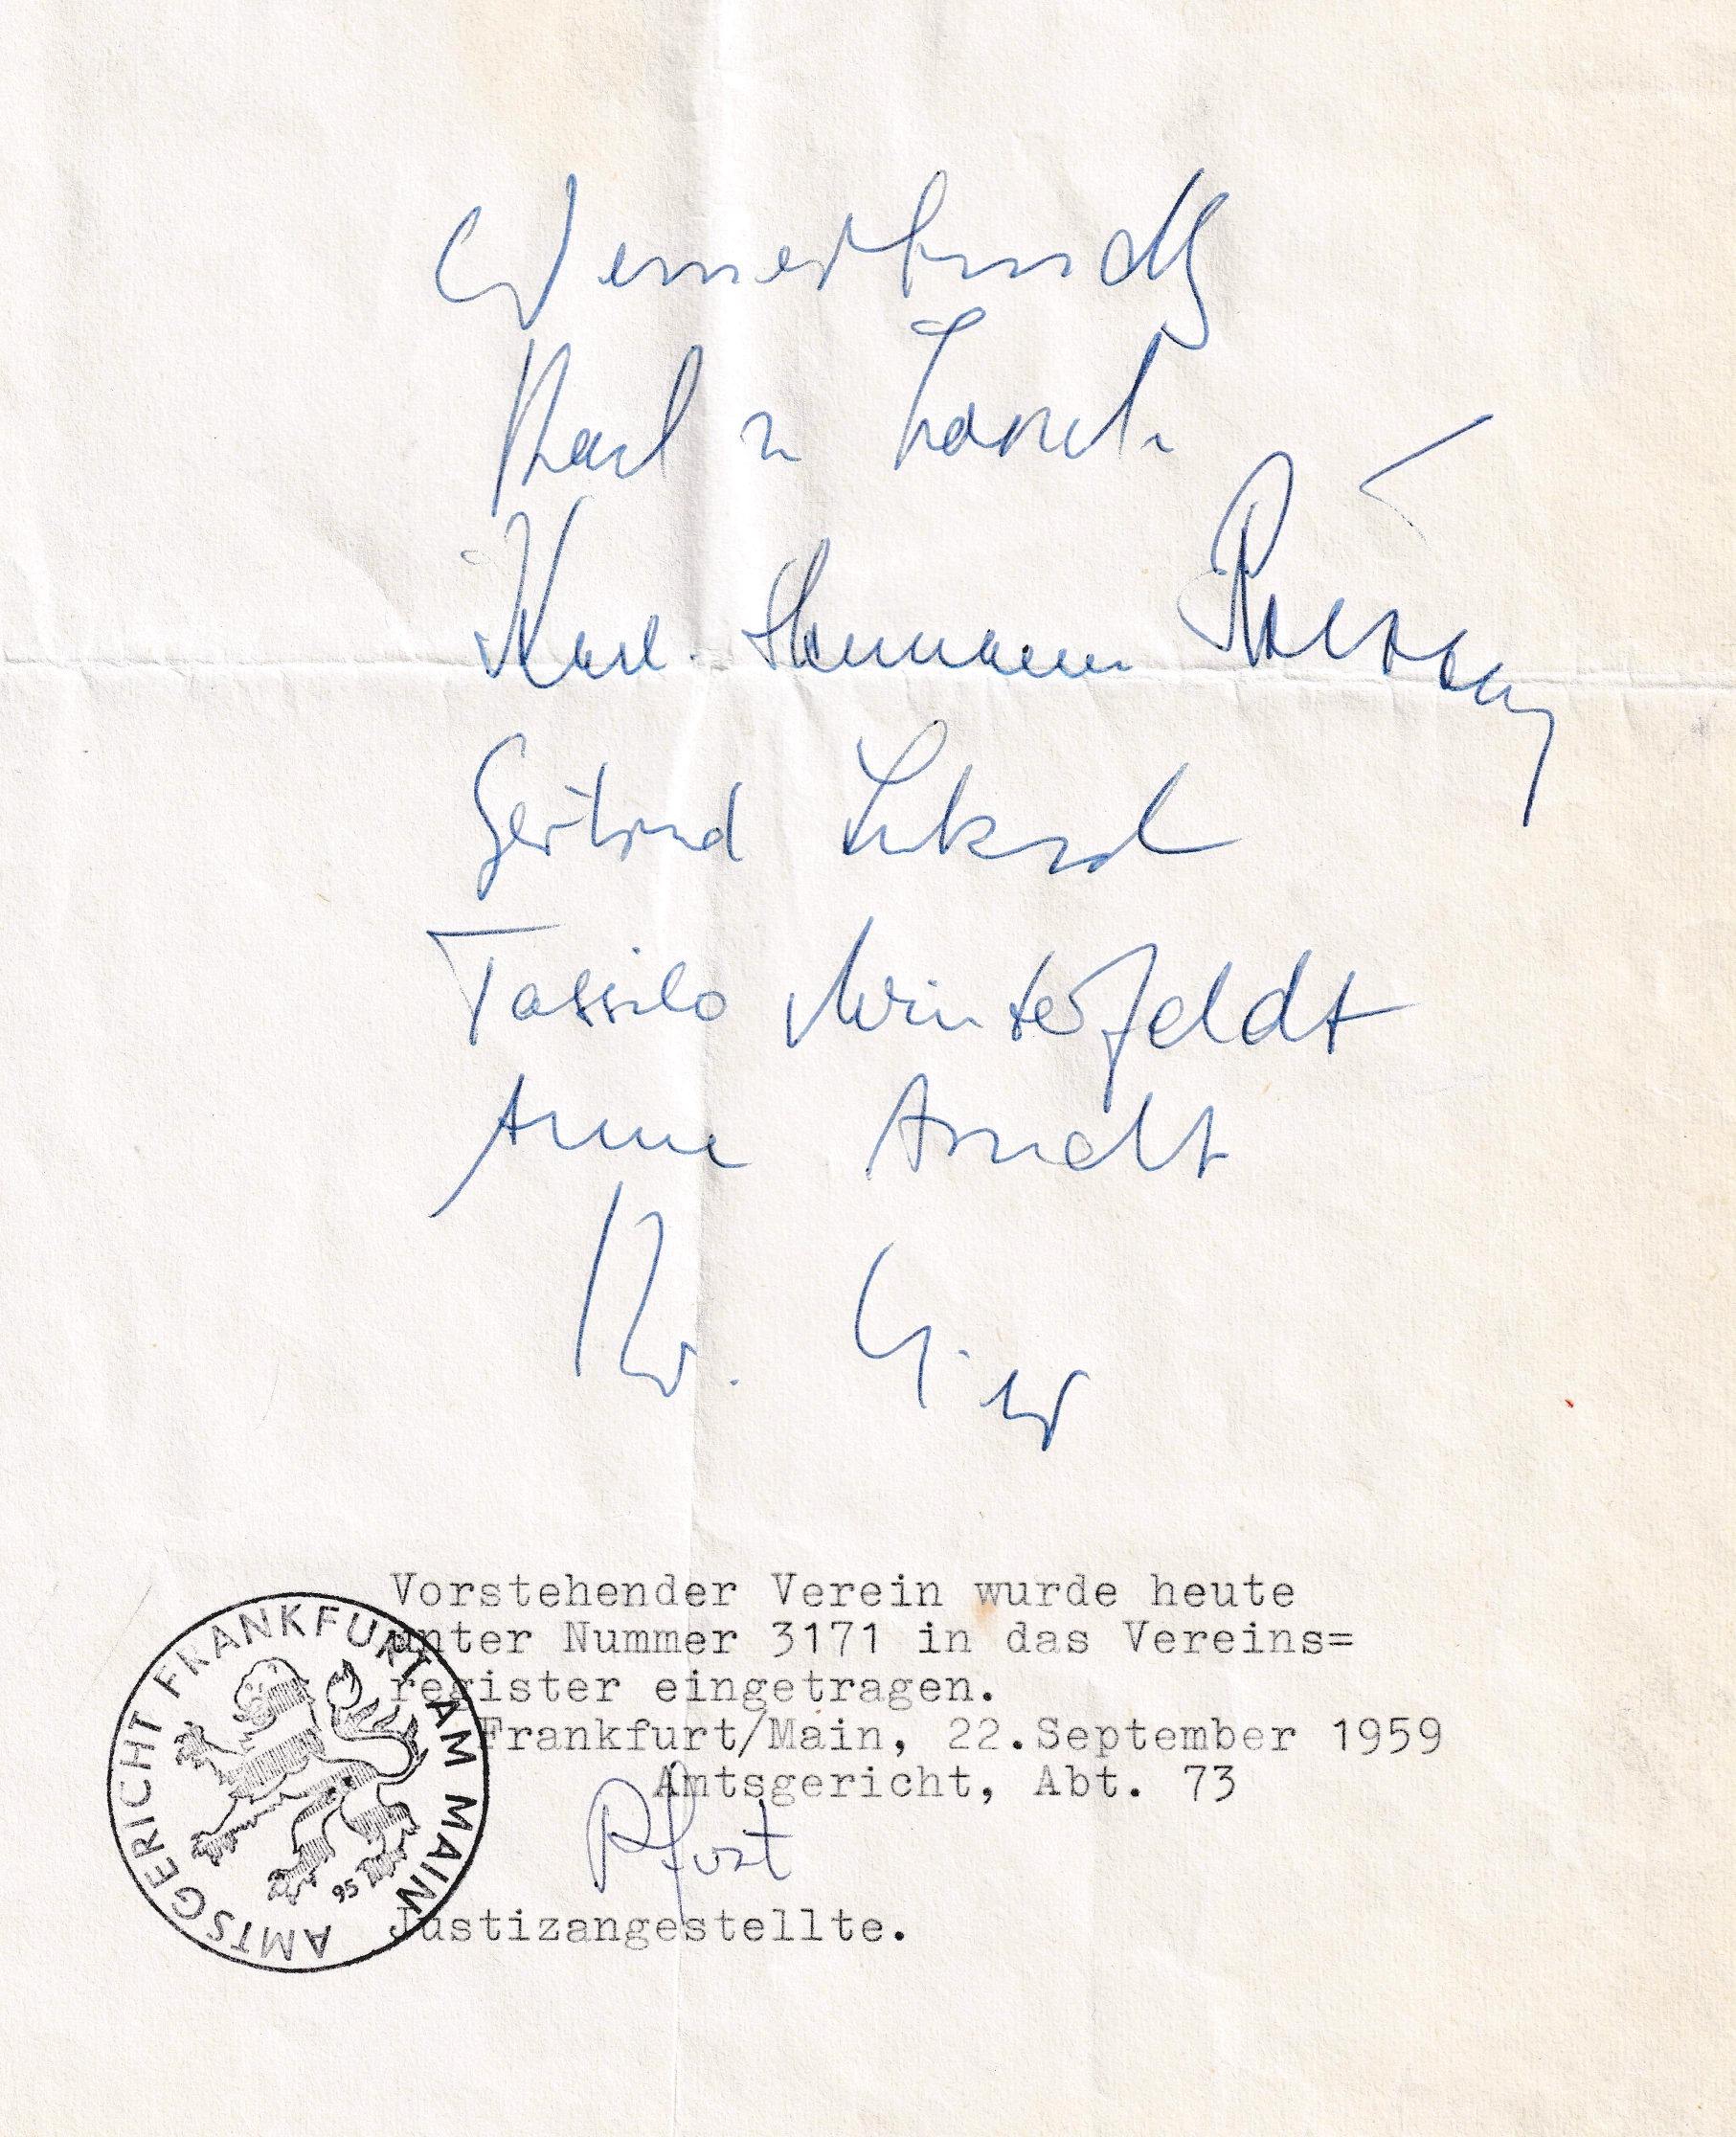 Werner
Karl
Karl-Hermann
Gertrud
Tassilo Winterfeldt
Anne Arndt
Vorstehender Verein wurde heute
unter Nummer 3171 in das Vereins=
register eingetragen.
Frankfurt/Main, 22.September 1959
Amtsgericht, Abt. 73
Justizangestellte.
AMTSGERICHT FRANKFURT AM MAIN
95